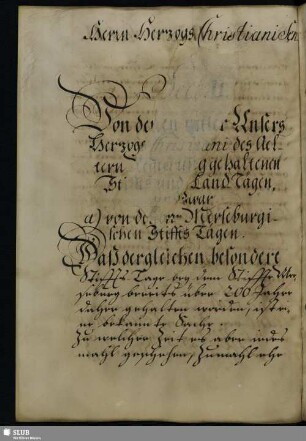 Herrn Herzogs Christiani Sen
Von de Unsers
Herzog ani des Ael
tern g gehaltenen
Land Tagen,
Zwar
a) von de Merseburgi-
schen Stiffts Tagen.
Daß dergleichen besondere
Stiffts Tage bey dem Stiffte Mer-
seburg bereits über 200 Jahre
daher gehalten worden, ist ei-
ne bekannte Sache.
Zu welcher Zeit es aber iedes
mahl geschehen, zumahl ehe
SLUB